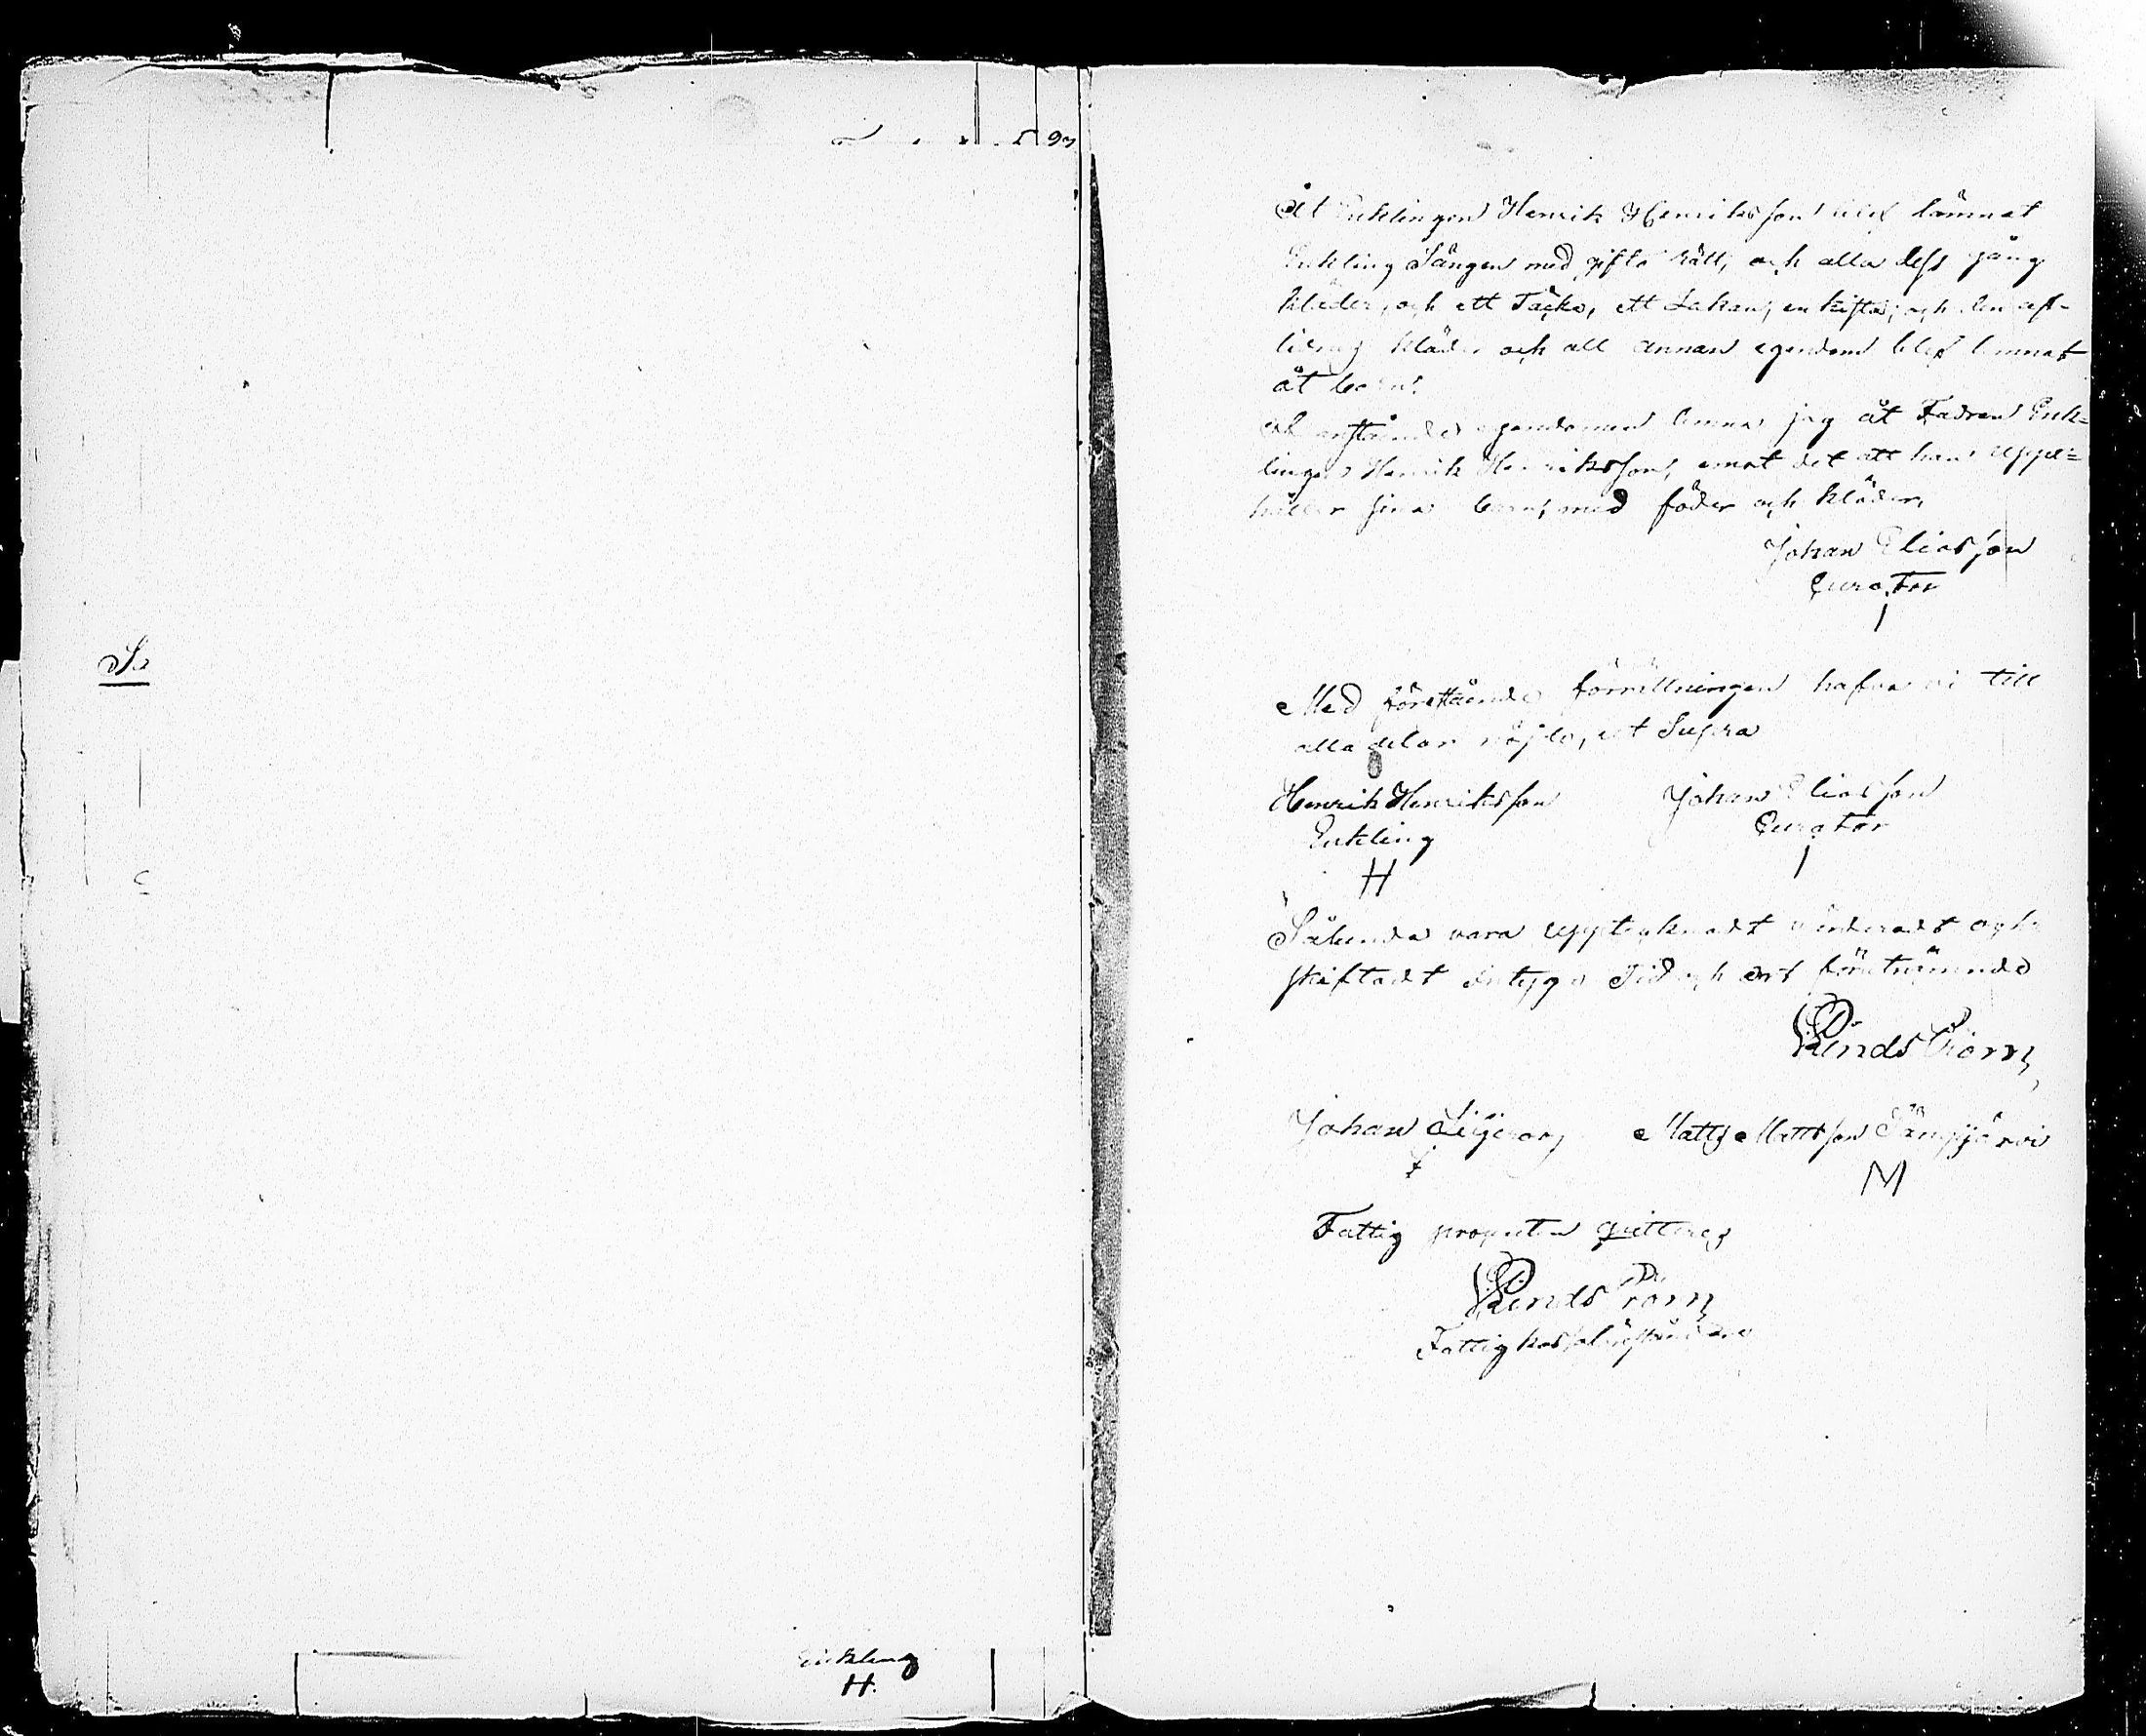 93
Sa
Enkling
H.
Åt Enklingen Henrik Henriksson blef lämnat
Enkling Sängen med gifto rätt, och alla dess gång
kläder, och ett Täcke, ett Lakan, en kista, och den af-
lidnes kläder och all annan egendom blef lemnat
åt barn.
anstående egendomen lemnar jag åt Fadren Enk=
lingen Henrik Henriksson, emot det att han uppe=
håller sina barn, med föder och kläder,
Johan Eliasson
Curator
Med förestående förrättningen hafva vi till
alla delar nöjde, ut Supra
Henrik Henriksson Johan Eliasson
Enkling Curator
H
Sålunda vara upptecknadt värderadt och
skiftadt intyga Tid och ort förutnämnde
Lindström
Johan Matts Mattsson Sämpjärvi
M
Fattig procenten qvitteras
Lindström
Fattig kasse föreståndare